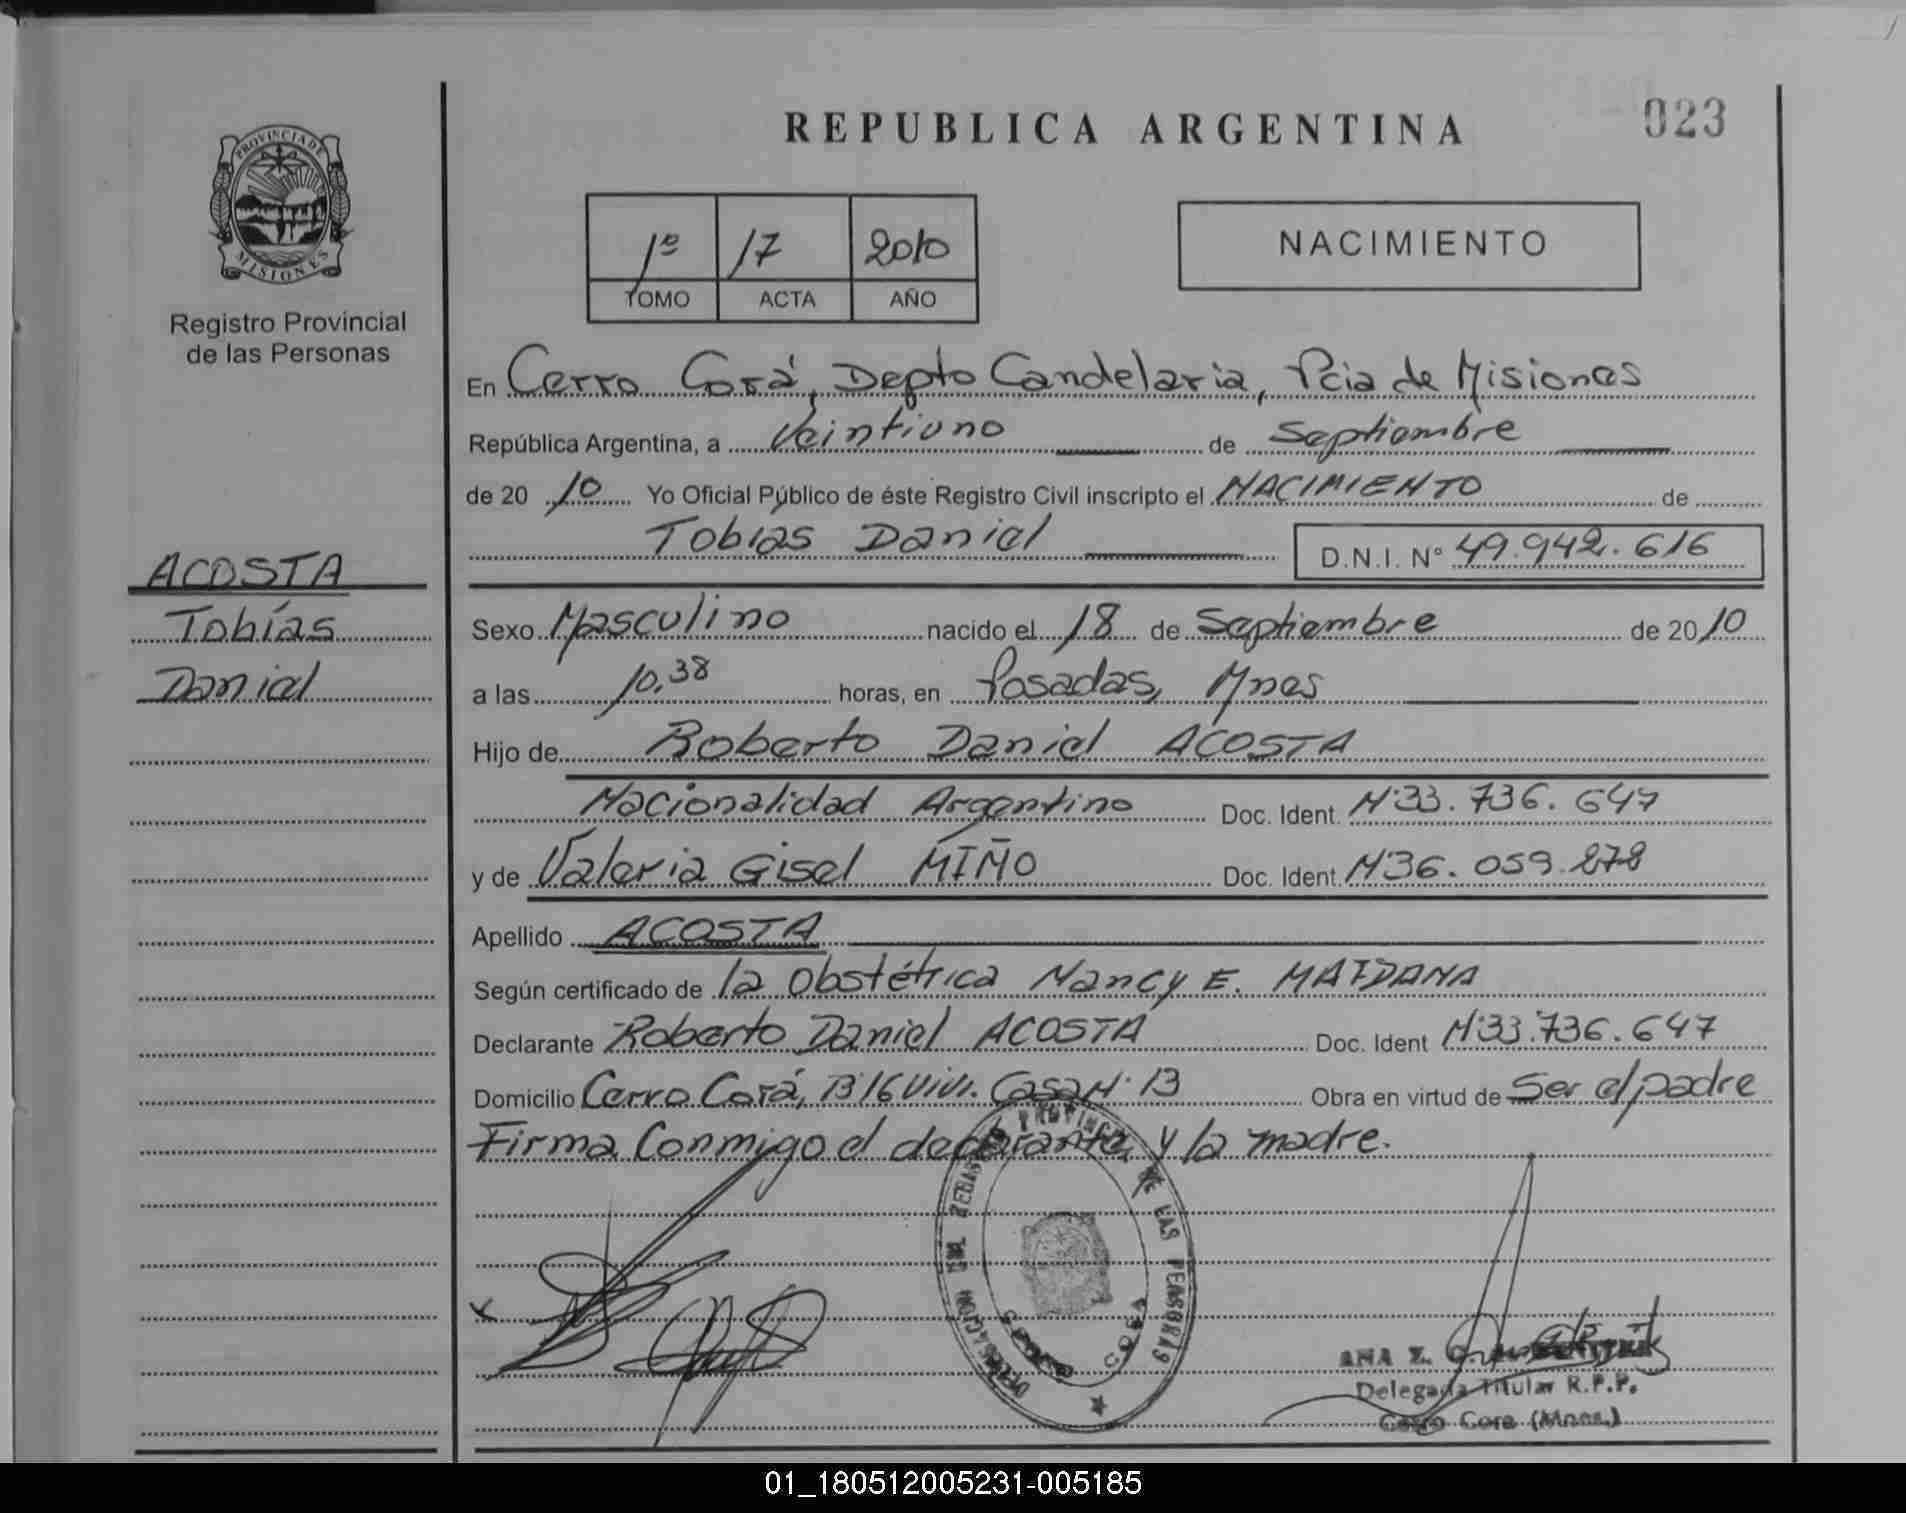 REPUBLICA ARGENTINA
023
PROVINCIA DE
MISIONES
Registro Provincial
de las Personas
1º 17 2010
TOMO ACTA AÑO
NACIMIENTO
En Cerro Corá, Depto Candelaria, Pcia de Misiones
República Argentina, a Veintiuno de Septiembre
de 2010 Yo Oficial Público de éste Registro Civil inscripto el NACIMIENTO de
Tobias Daniel D.N.I. Nº 49.942.616
ACOSTA
Tobías
Daniel
Sexo Masculino nacido el 18 de Septiembre de 2010
a las 10,38 horas, en Posadas, Mnes
Hijo de Roberto Daniel ACOSTA
Nacionalidad Argentino Doc. Ident. Nº33.736.647
y de Valeria Gisel MIÑO Doc. Ident. Nº36.059.278
Apellido ACOSTA
Según certificado de la Obstétrica Nancy E. MAIDANA
Declarante Roberto Daniel ACOSTA Doc. Ident Nº33.736.647
Domicilio Cerro Corá, Bº16 Viv. Casa Nº 13 Obra en virtud de Ser el padre
Firma Conmigo el declarante y la madre.
PROVINCIAL DE LAS PERSONAS
CERRO CORA
ANA
Delegada Titular R.P.P.
Cerro Cora (Mnes.)
01_180512005231-005185